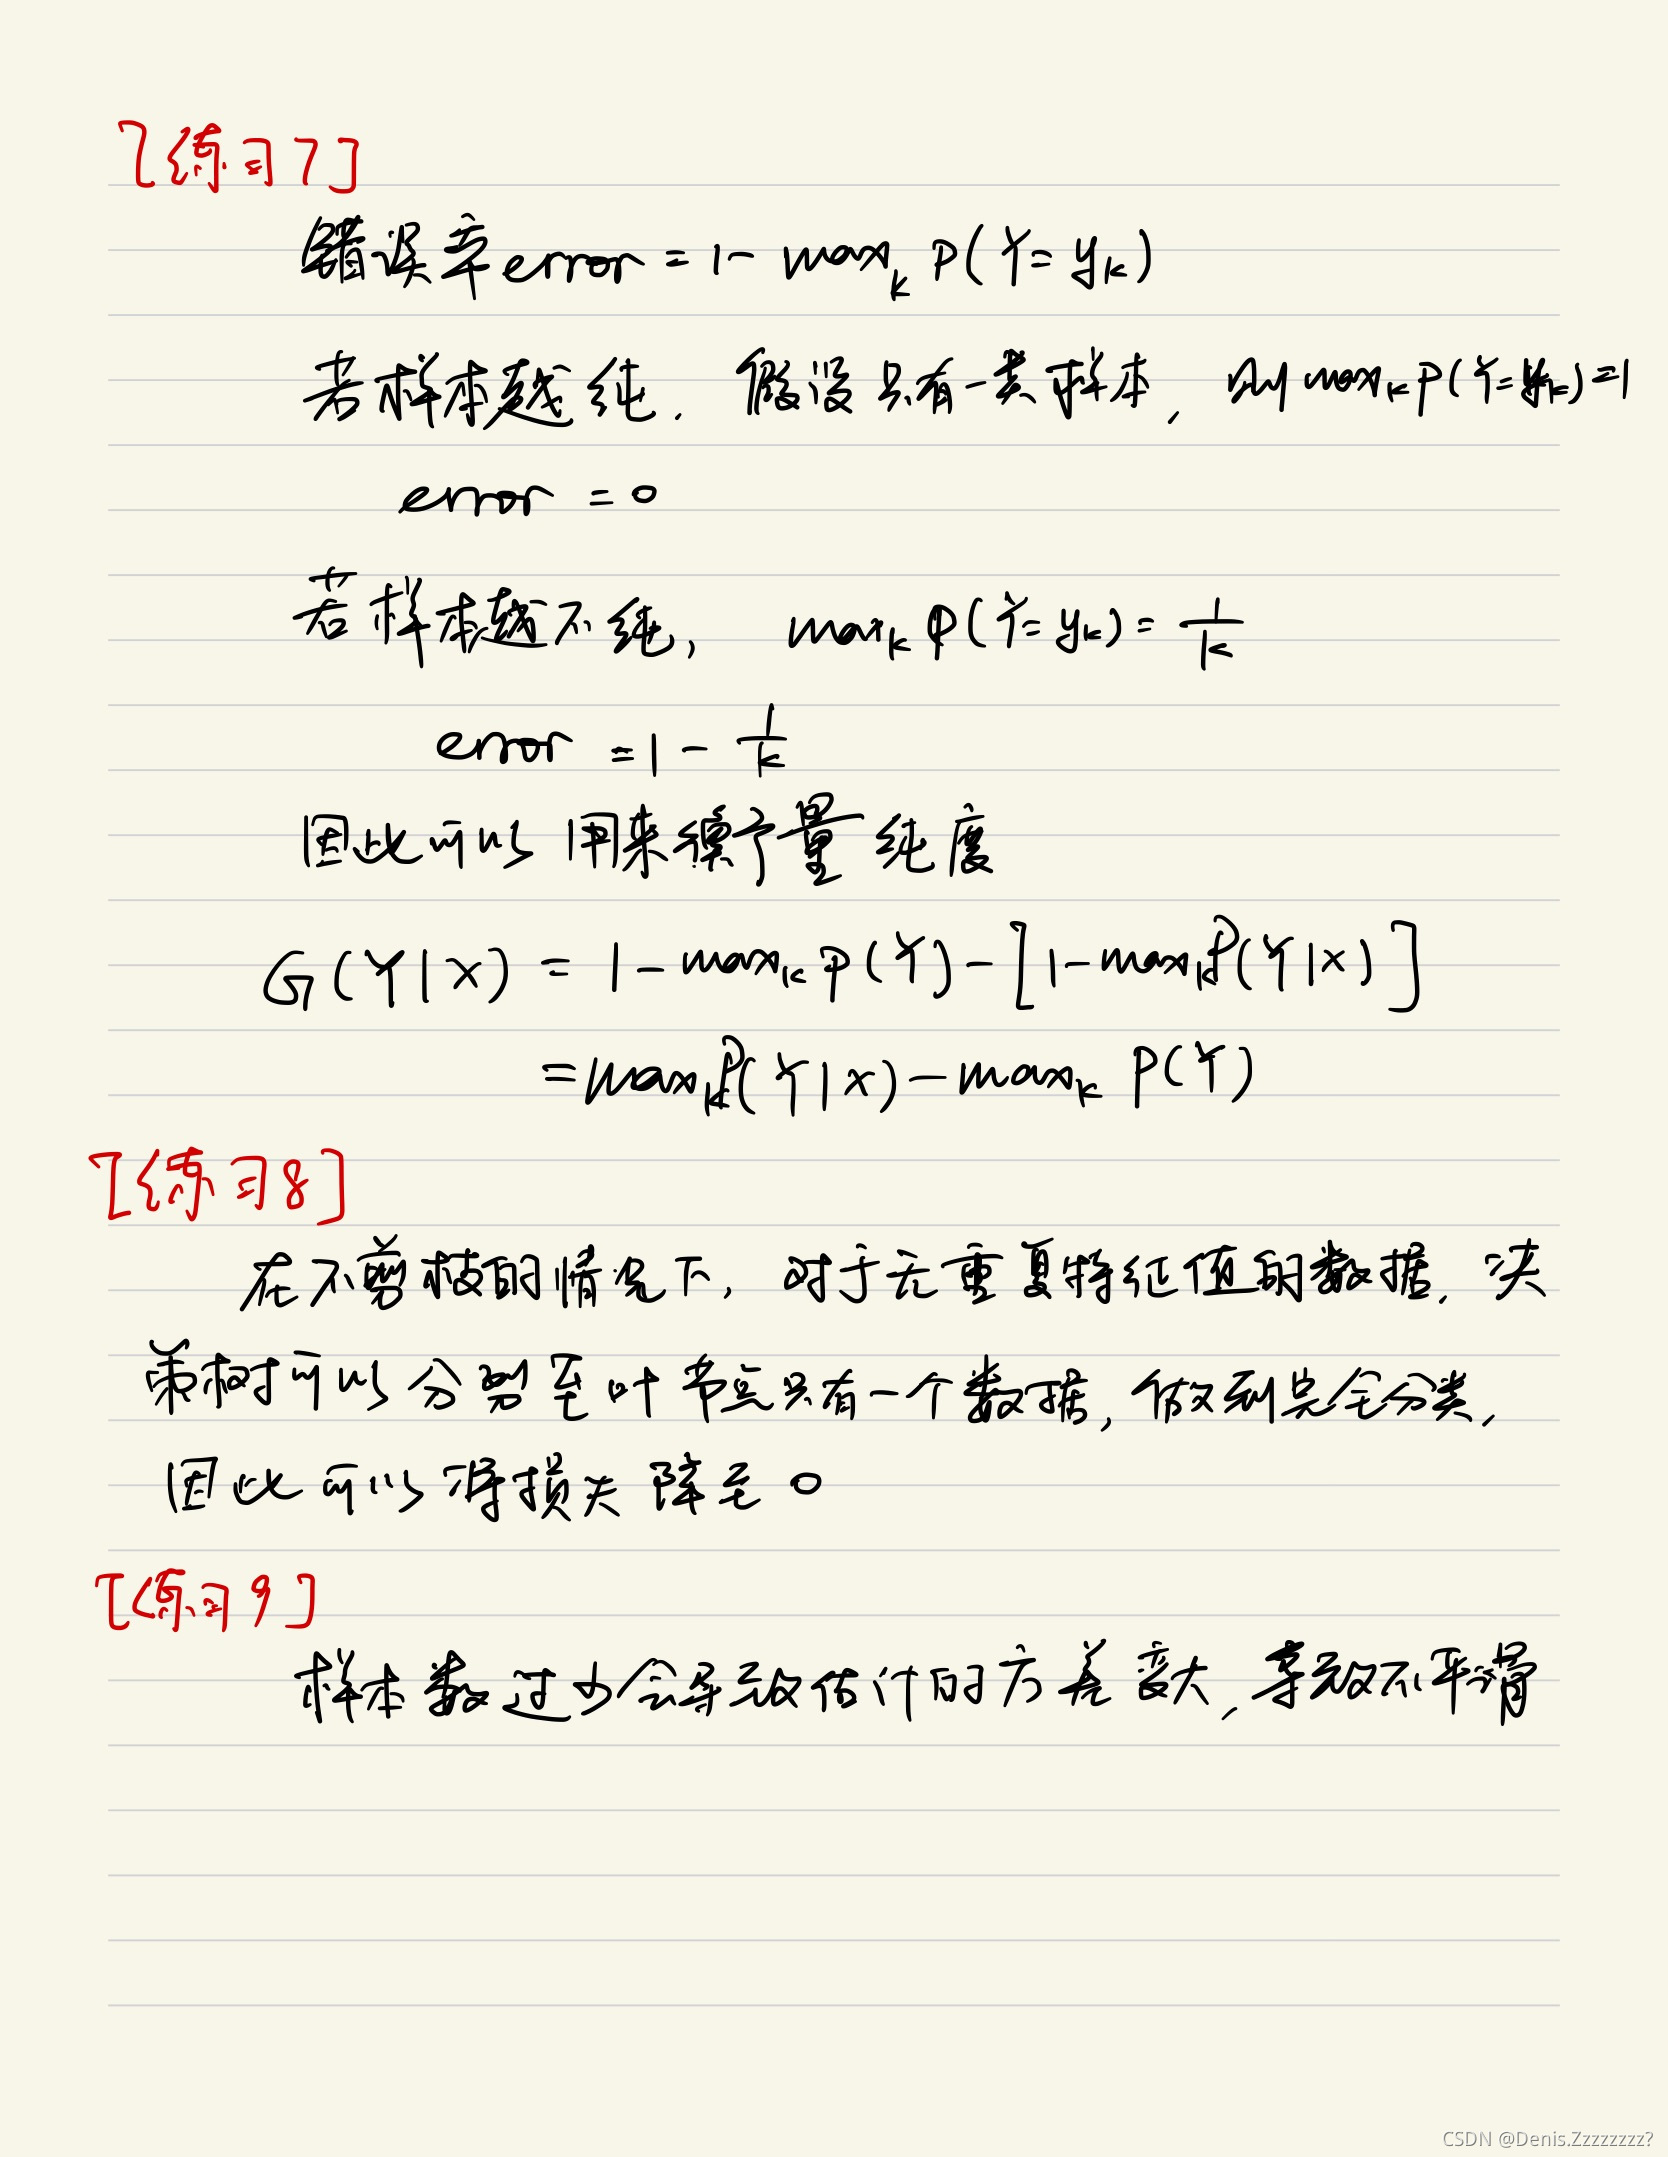 [练习7]
错误率error = 1 - max_k P(Y=y_k)
若样本越纯. 假设只有一类样本, 则max_k P(Y=y_k)=1
error = 0
若样本越不纯, max_k P(Y=y_k) = 1/k
error = 1 - 1/k
因此可以用来衡量纯度
G(Y|X) = 1 - max_k P(Y) - [1 - max_k P(Y|X)]
= max_k P(Y|X) - max_k P(Y)
[练习8]
在不剪枝的情况下, 对于无重复特征值的数据, 决
策树可以分割至叶节点只有一个数据, 做到完全分类,
因此可以将损失降至0
[练习9]
样本数过少会导致估计的方差变大, 导致不平滑
CSDN @Denis.Zzzzzzzz?